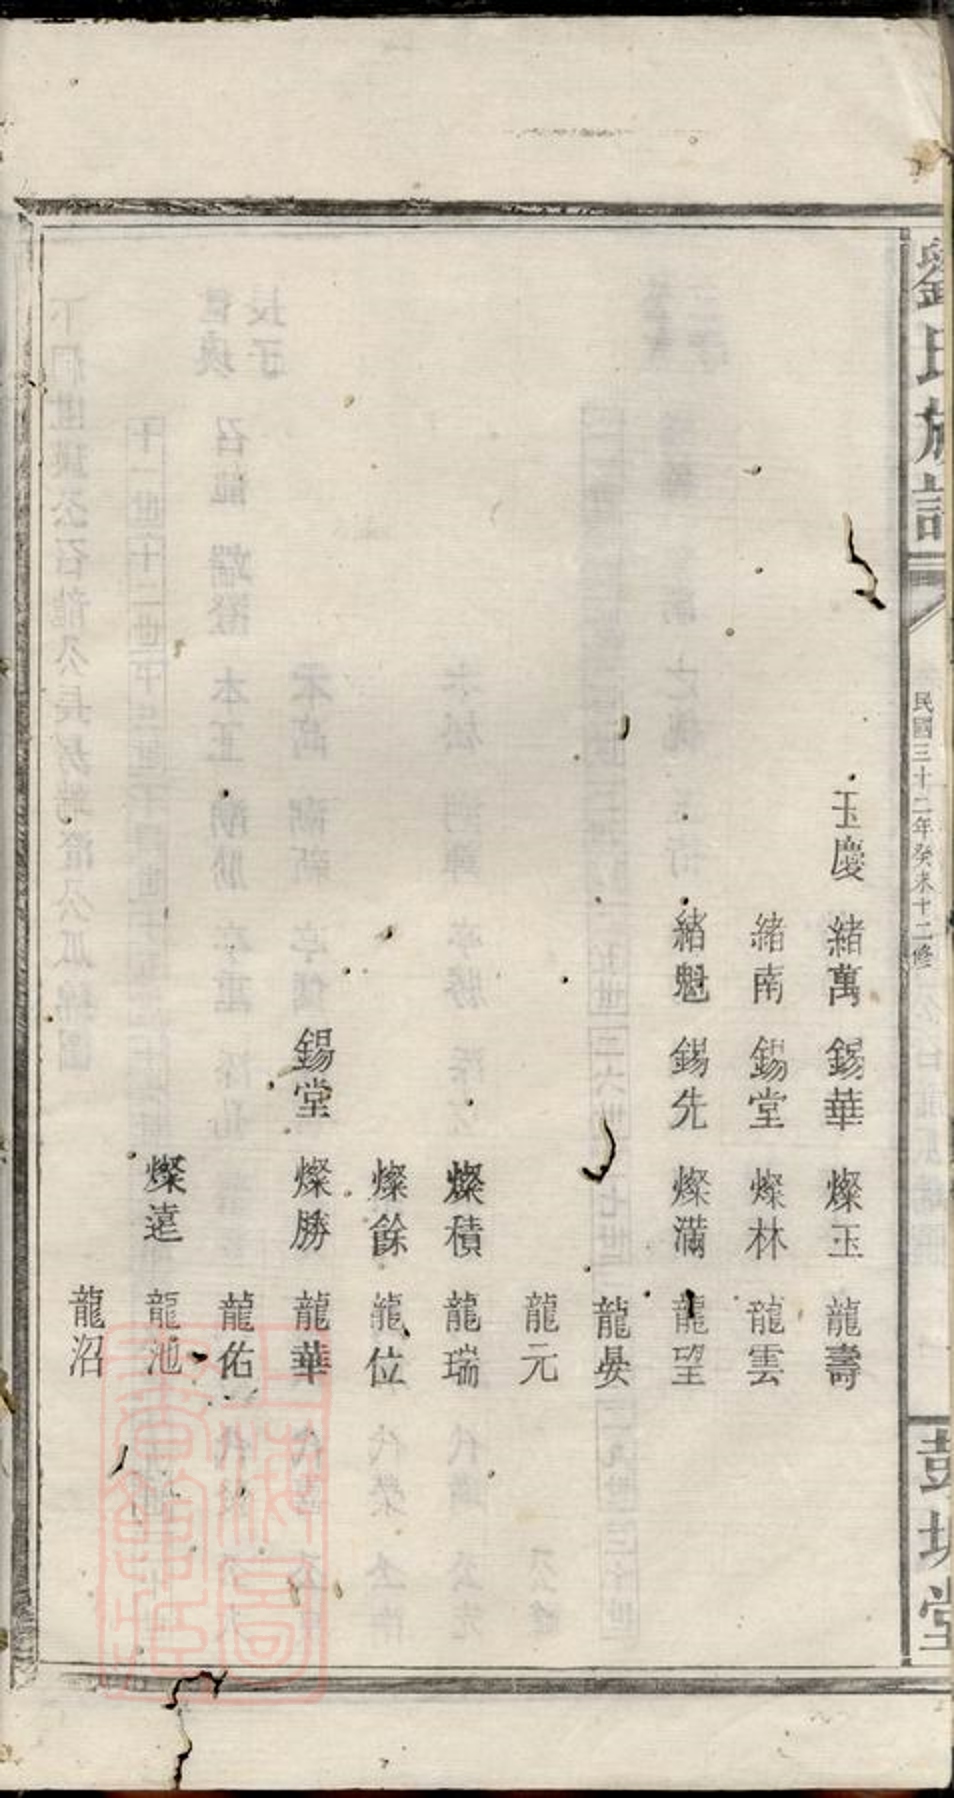 劉氏族譜
民國三十二年癸未十二修
彭城堂
玉慶 緒萬 錫華 燦玉 龍壽
緒南 錫堂 燦林 龍雲
緒魁 錫先 燦滿 龍望
龍晏
龍元
燦積 龍瑞
燦餘 龍位
錫堂 燦勝 龍華
龍佑
燦遠 龍池
龍沼